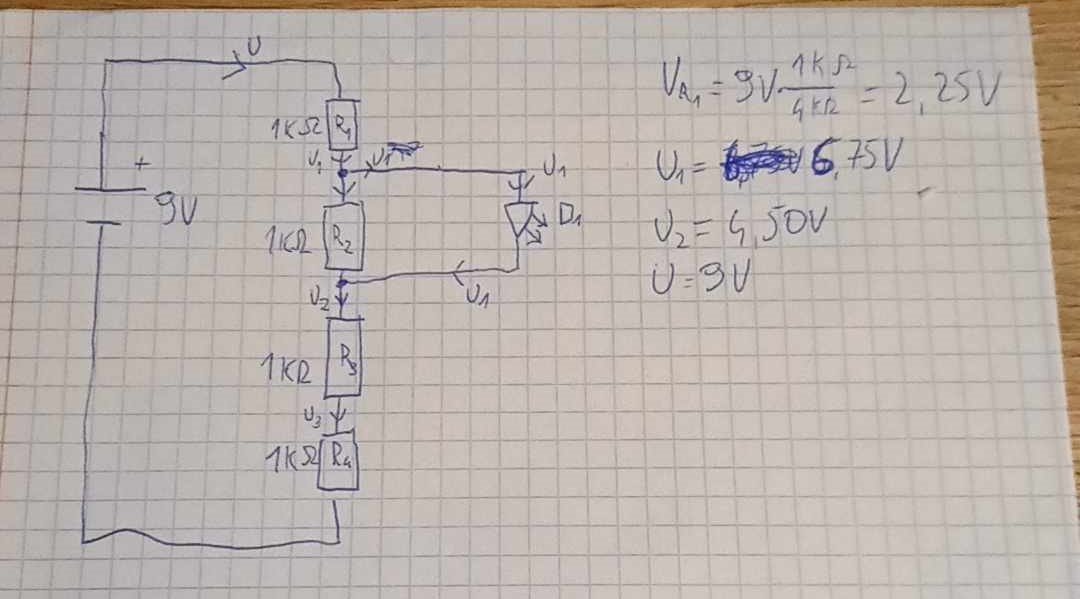 U
1KΩ R1
U1 U1 U1
+
9V
1KΩ R2 D1
U2 U1
1KΩ R3
U3
1KΩ R4
UR1 = 9V · 1KΩ / 4KΩ = 2,25V
U1 = 6,75V
U2 = 4,50V
U = 9V